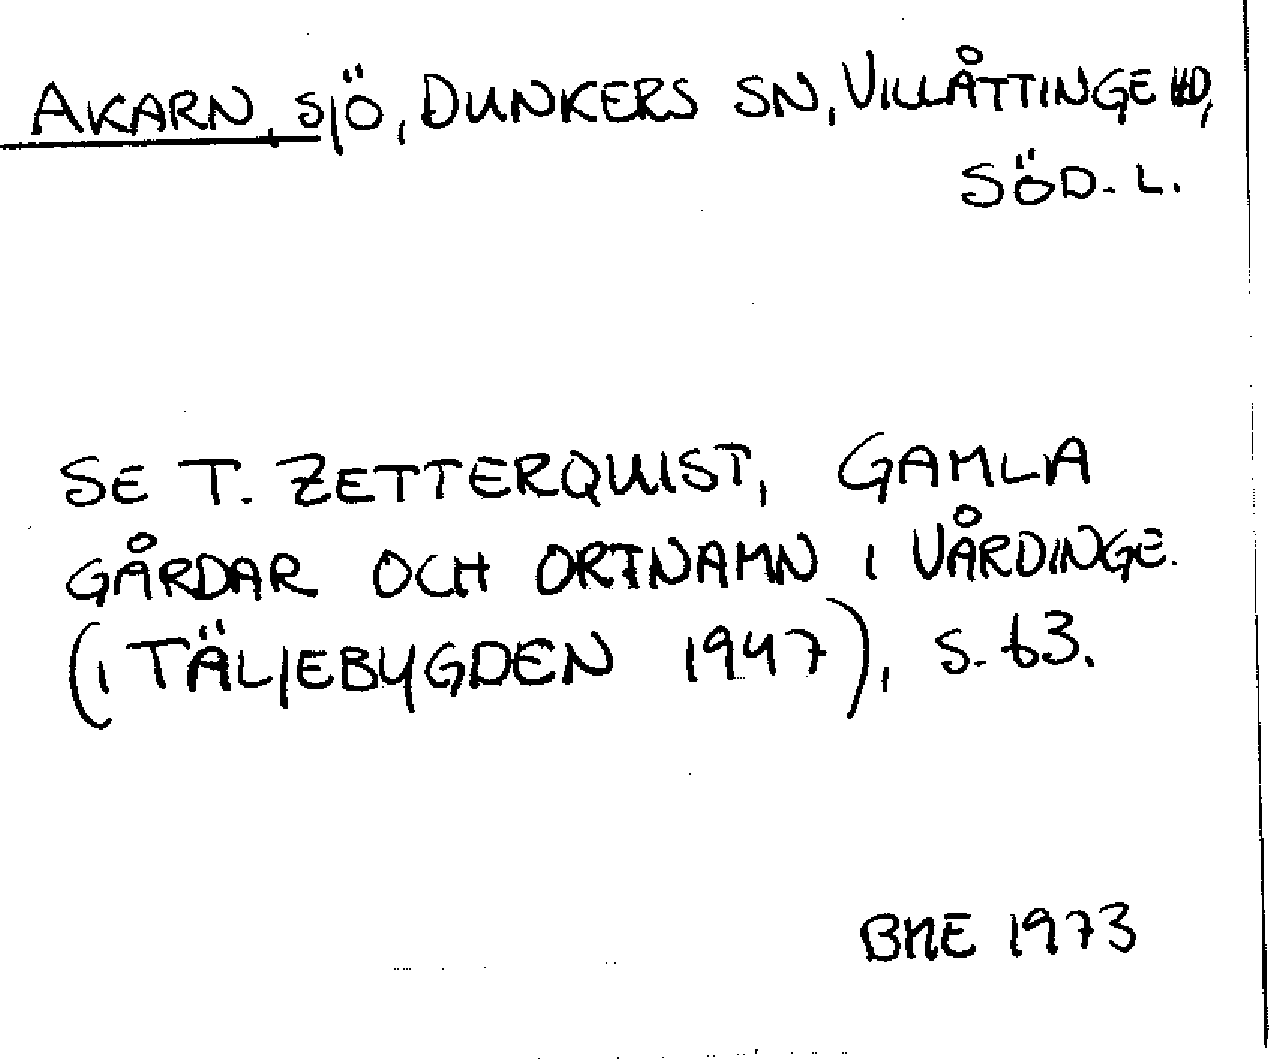 AKARN, SJÖ, DUNKERS SN, VILLÅTTINGE HD,
SÖD. L.
SE T. ZETTERQUIST, GAMLA
GÅRDAR OCH ORTNAMN I VÅRDINGE.
(I TÄLJEBYGDEN 1947), S. 63.
BNE 1973